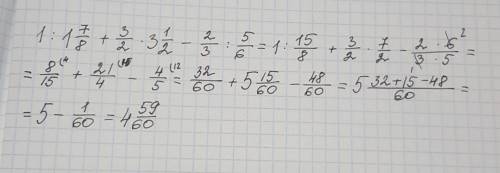 1 : 1 7/8 + 3/2 · 3 1/2 − 2/3 : 5/6 = 1 : 15/8 + 3/2 · 7/2 − (2 · 6²)/(3 · 5) =
= 8/15 (4 + 21/4 (15 − 4/5 (12 = 32/60 + 5 15/60 − 48/60 = 5 (32+15−48)/60 =
= 5 − 1/60 = 4 59/60